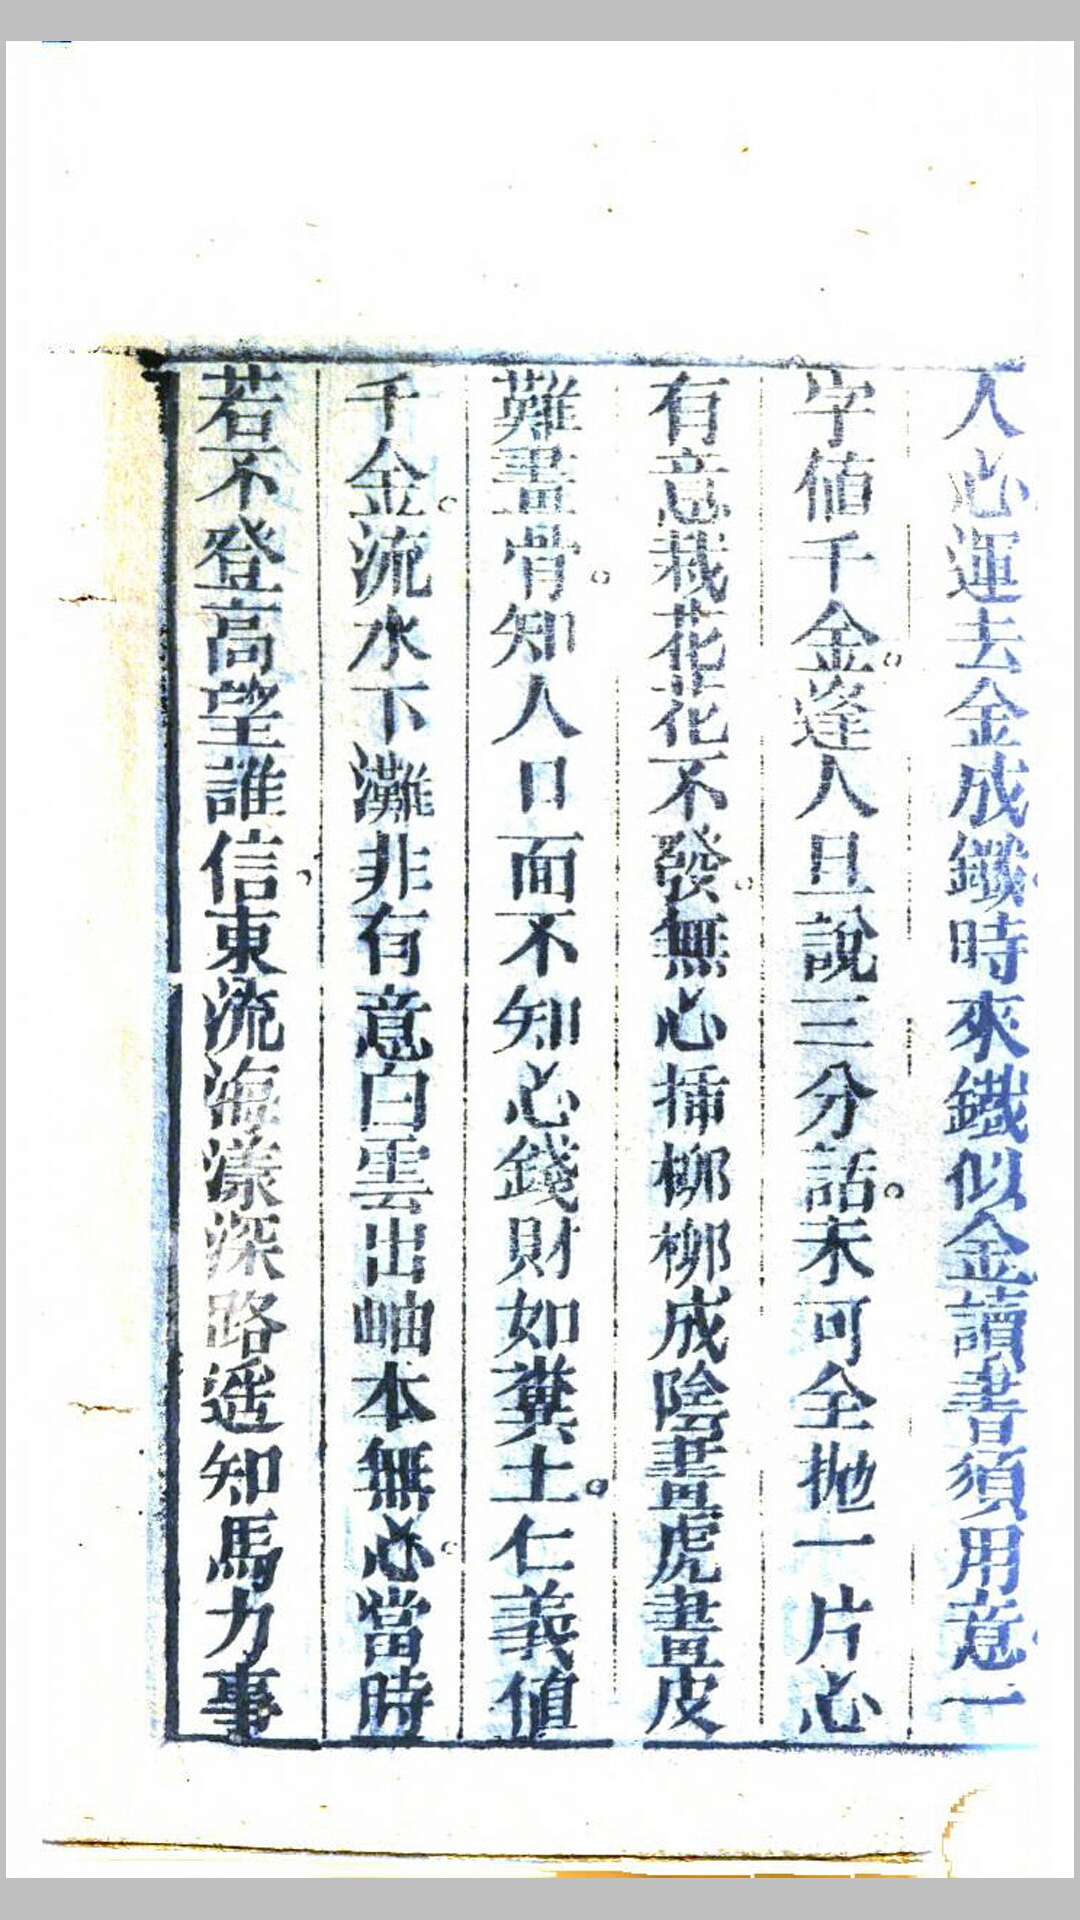 人心運去金成鐵時來鐵似金讀書須用意一
字値千金。逢人且說三分話。未可全抛一片心
有意栽花花不發。無心揷柳柳成陰畫虎畫皮
難畫骨。知人口面不知心錢財如糞土。仁義値
千金。流水下灘非有意白雲出岫本無心。當時
若不登高望誰信東流海漾深路遥知馬力事